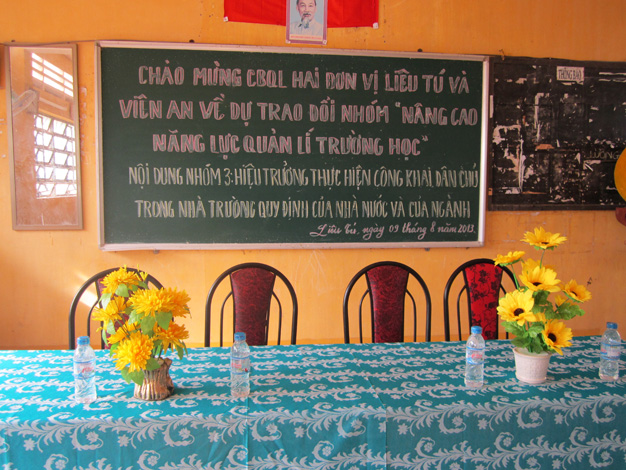 CHÀO MỪNG CBQL HAI ĐƠN VỊ LIÊU TÚ VÀ
VIÊN AN VỀ DỰ TRAO ĐỔI NHÓM "NÂNG CAO
NĂNG LỰC QUẢN LÍ TRƯỜNG HỌC"
NỘI DUNG NHÓM 3: HIỆU TRƯỞNG THỰC HIỆN CÔNG KHAI, DÂN CHỦ
TRONG NHÀ TRƯỜNG QUY ĐỊNH CỦA NHÀ NƯỚC VÀ CỦA NGÀNH
Liêu Tú, ngày 09 tháng 8 năm 2013.
THÔNG BÁO